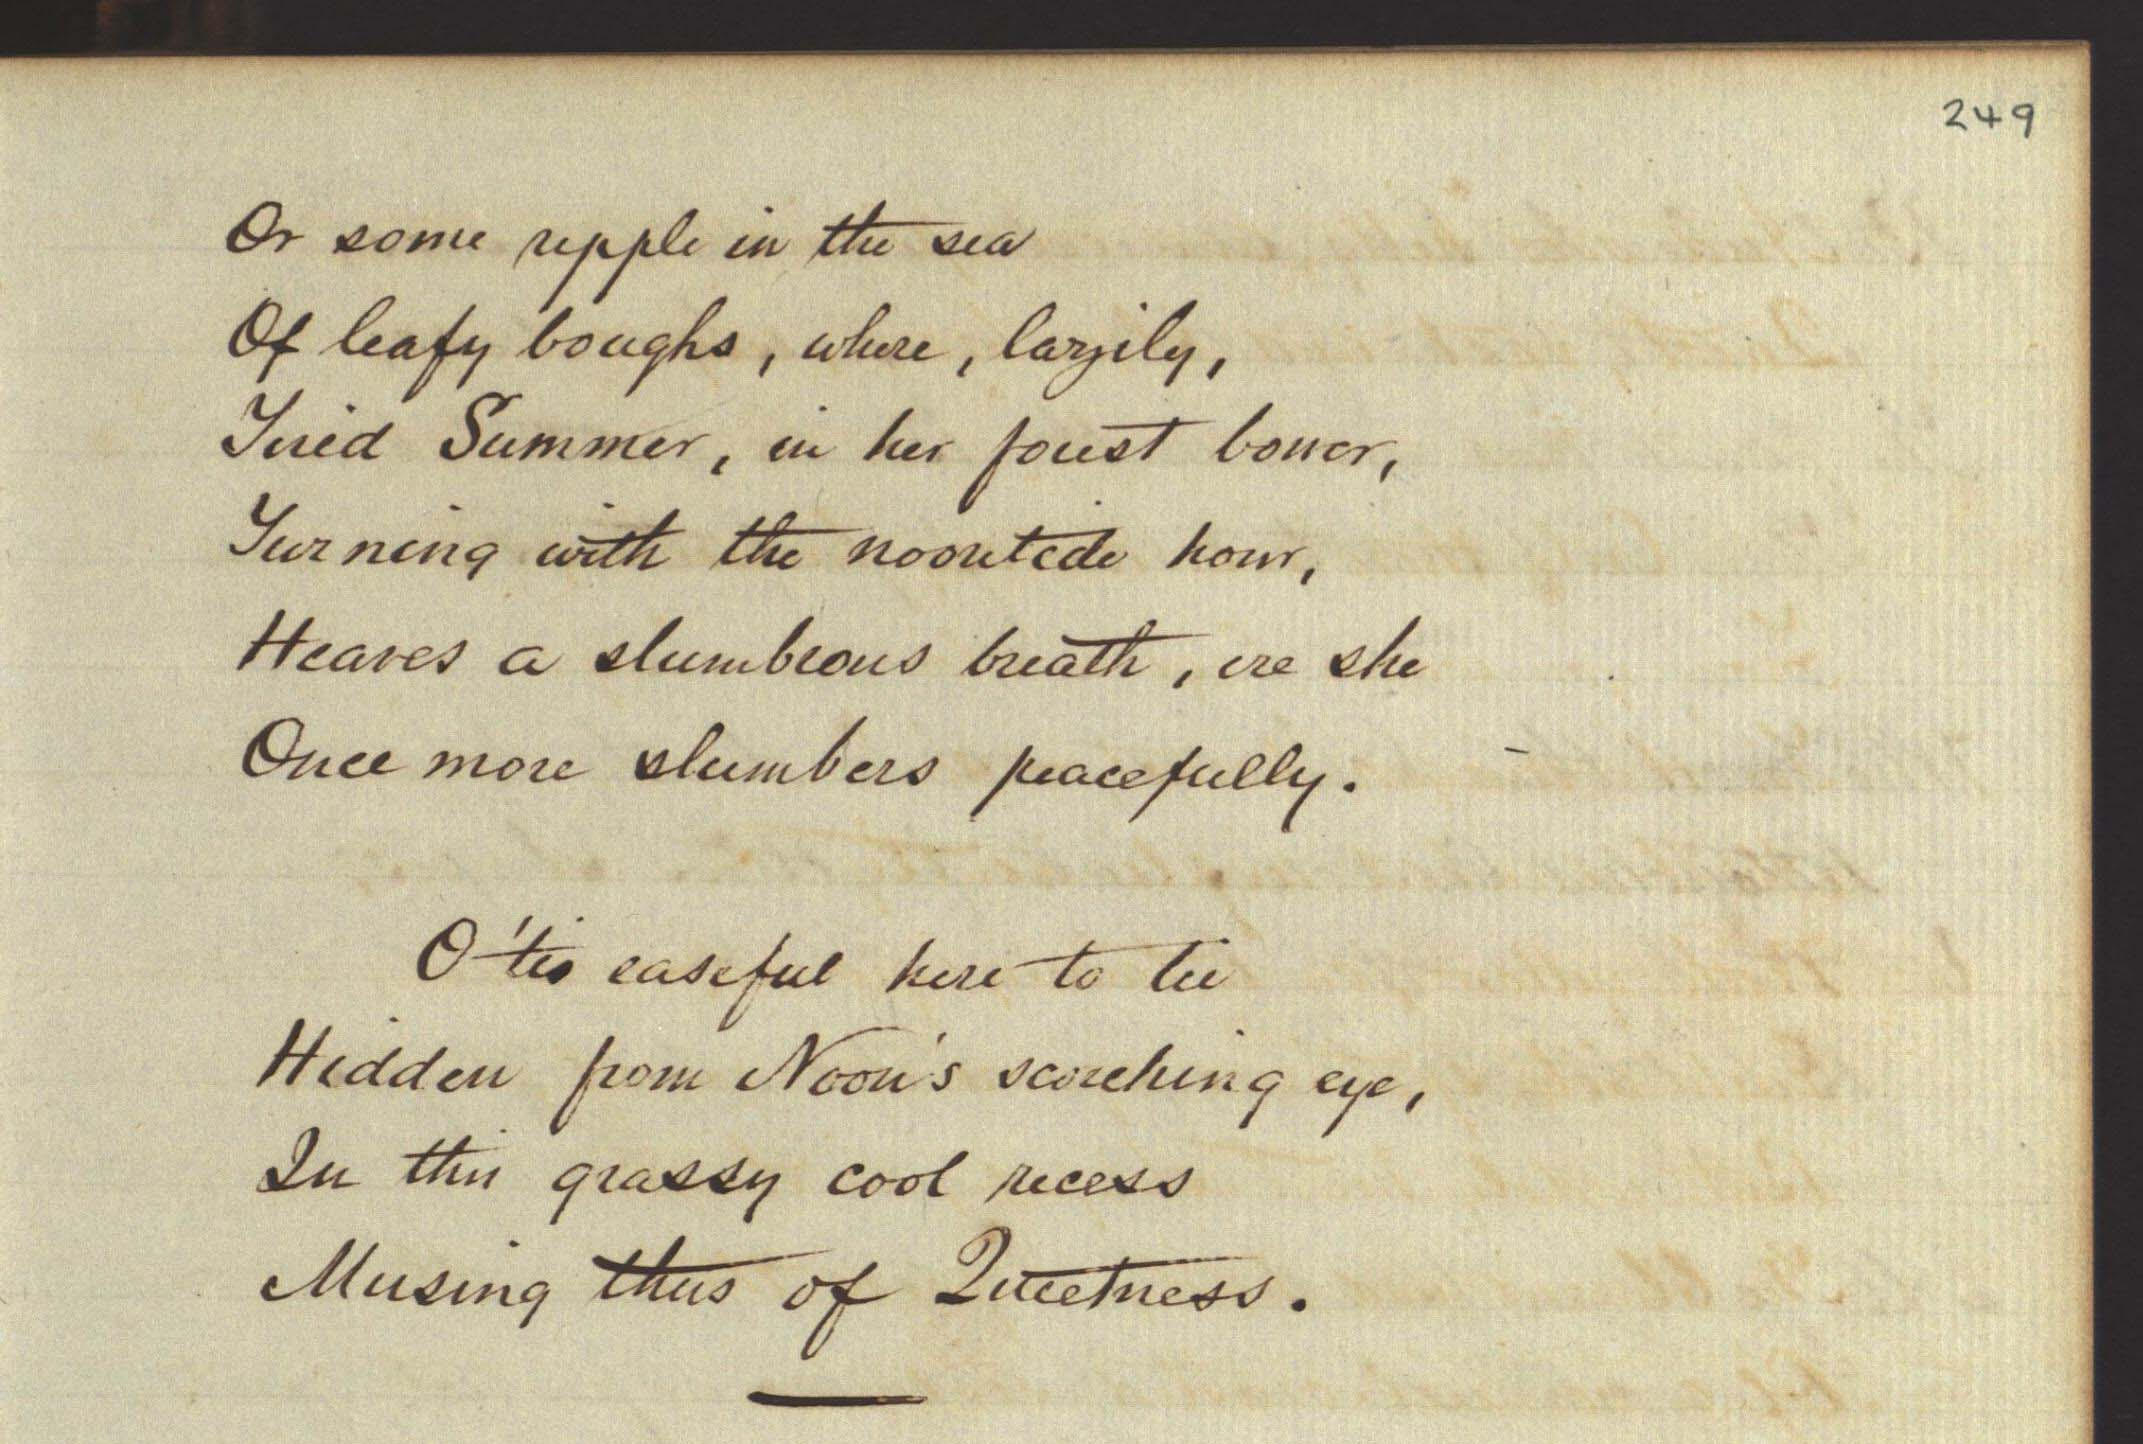 249
Or some ripple in the sea
Of leafy boughs, where, lazily,
Tired Summer, in her forest bower,
Turning with the noontide hour,
Heaves a slumbrous breath, ere she
Once more slumbers peacefully.
O 'tis easeful here to lie
Hidden from Noon's scorching eye,
In this grassy cool recess
Musing thus of Quietness.